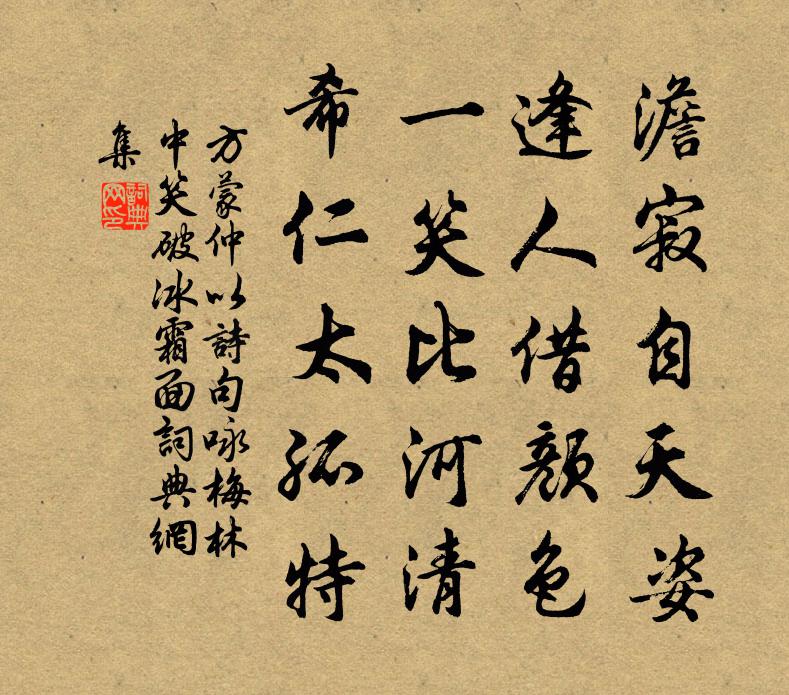 澹寂自天姿
逢人借顏色
一笑比河清
希仁太孤特
方蒙仲以詩句咏梅林
中笑破冰霜面詞典網
集
詞典網印